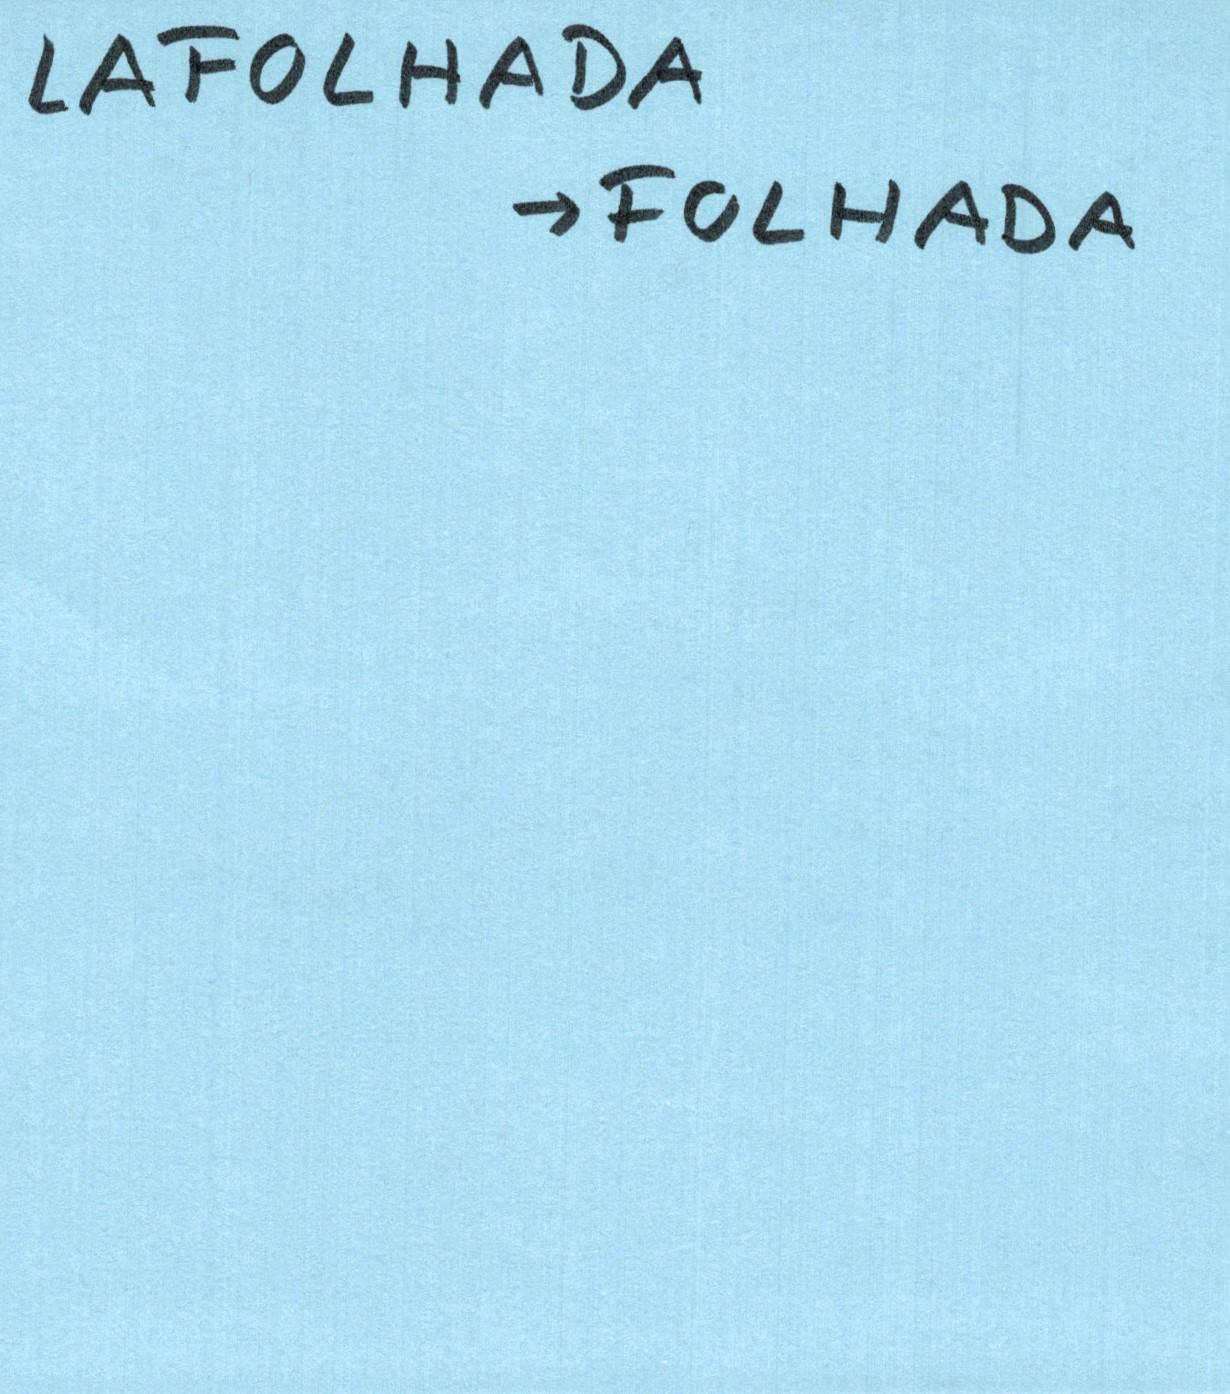 LAFOLHADA
→FOLHADA